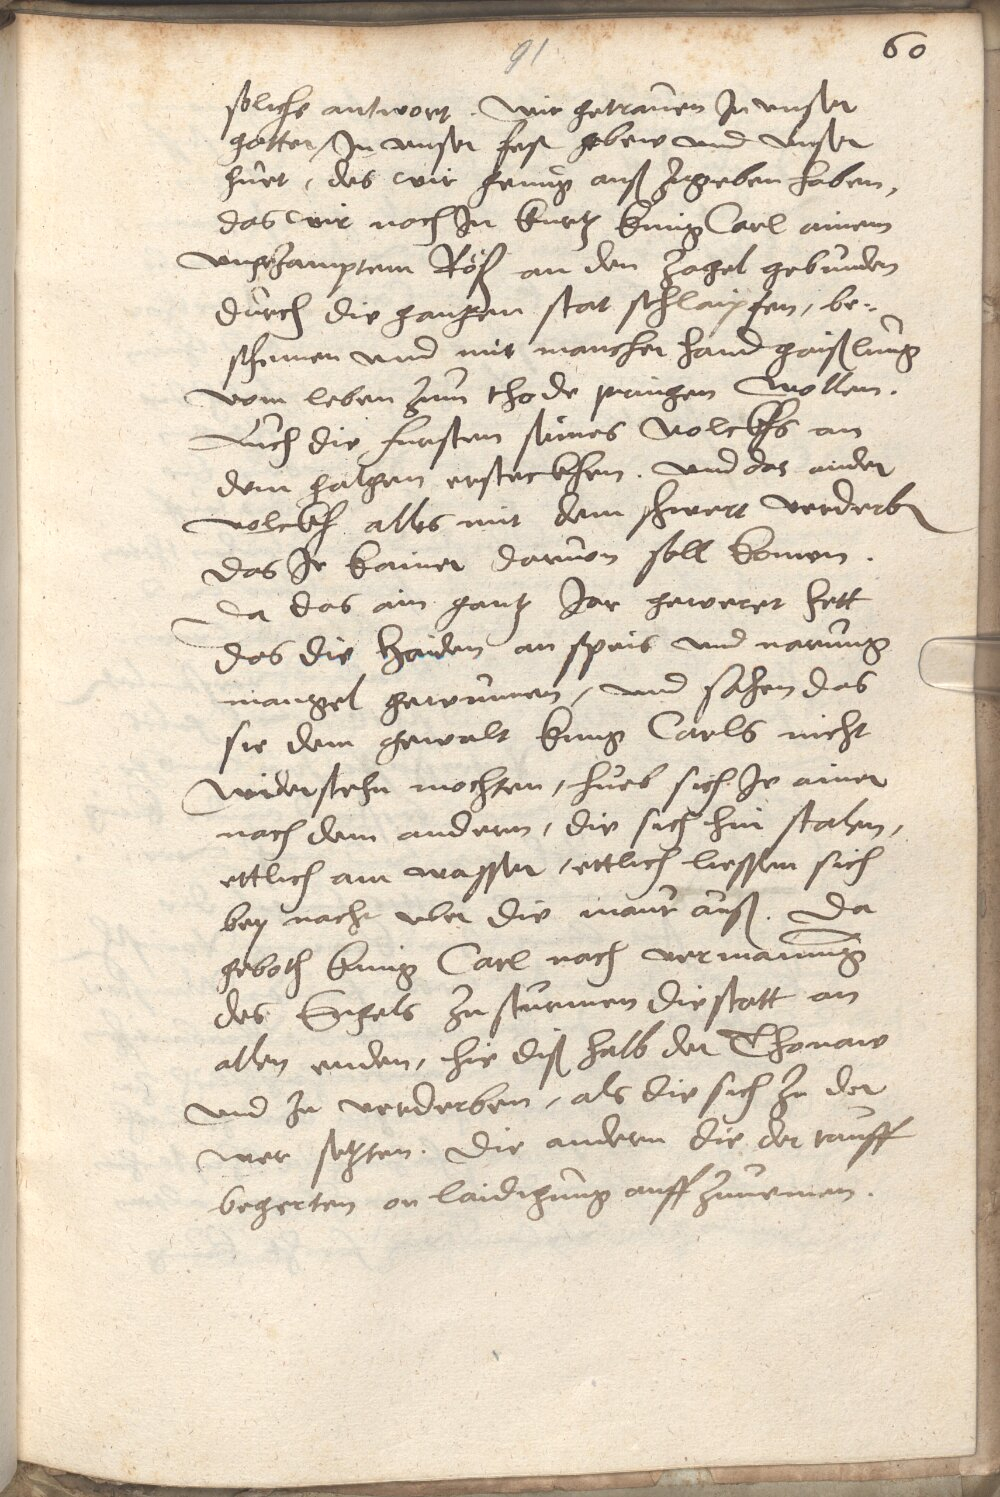 91
60
solichs antwort. Wir getrauen In unser
gotter / In unser fest gebew und unser
huet, des wir genug auß zugeben haben,
das wir noch In kurtz kunig Carl ainem
ungezamptem Röß an den zagel gebunden
durch die gantzen stat schlaipfen, be-
schemen und mit mancher hand gaißlung
vom leben zum thode pringen wollen.
Auch die fursten seines volckhs an
dem galgen ersteckhen. und das ander
volckh alles mit dem schwert verderbn
das Ir kainer daruon soll komen.
Da das ain gantz Jar geweret hett
das die Haiden an speis und narung
mangel gewunnen, und sahen das
sie dem gewalt kunig Carls nicht
widerstehn mochten, hueb sich Ie ainer
nach dem andern, die sich hin stalen,
ettlich am wasser, ettlich liessen sich
bey nacht uber die maur auß. Da
geboth kunig Carl nach vermanung
des Engels zu sturmen die statt an
allen enden, hie diß halb der Thonaw
und zu verderben, als die sich zu der
wer setzten. Die andern die der tauff
begerten on laidigung auff zunemen.